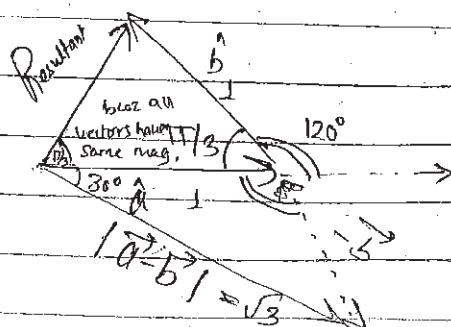 Resultant
b̂
1
bcoz all
vectors have
same mag.
π/3
120°
π/3
30°
â
1
|a⃗-b⃗| = √3